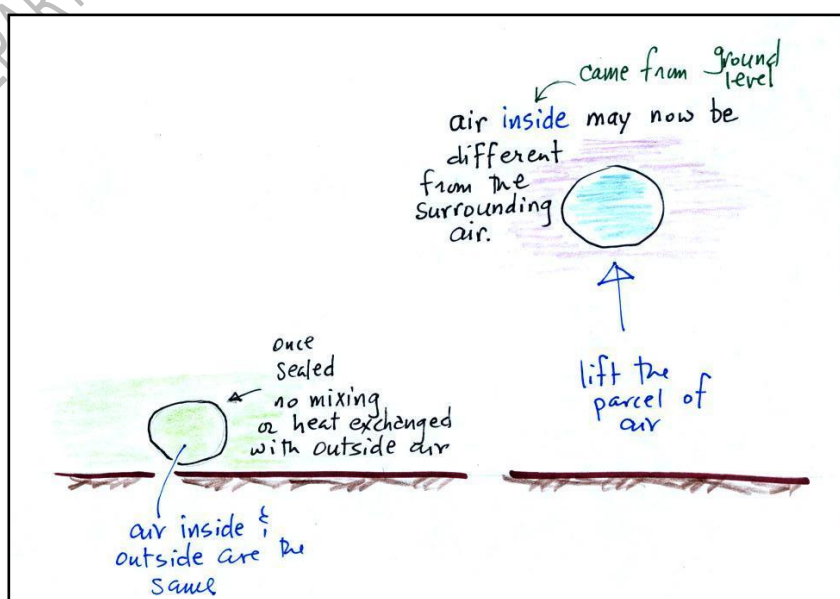 came from ground
level
air inside may now be
different
from the
surrounding
air.
once
sealed
no mixing
or heat exchanged
with outside air
lift the
parcel of
air
air inside &
outside are the
same